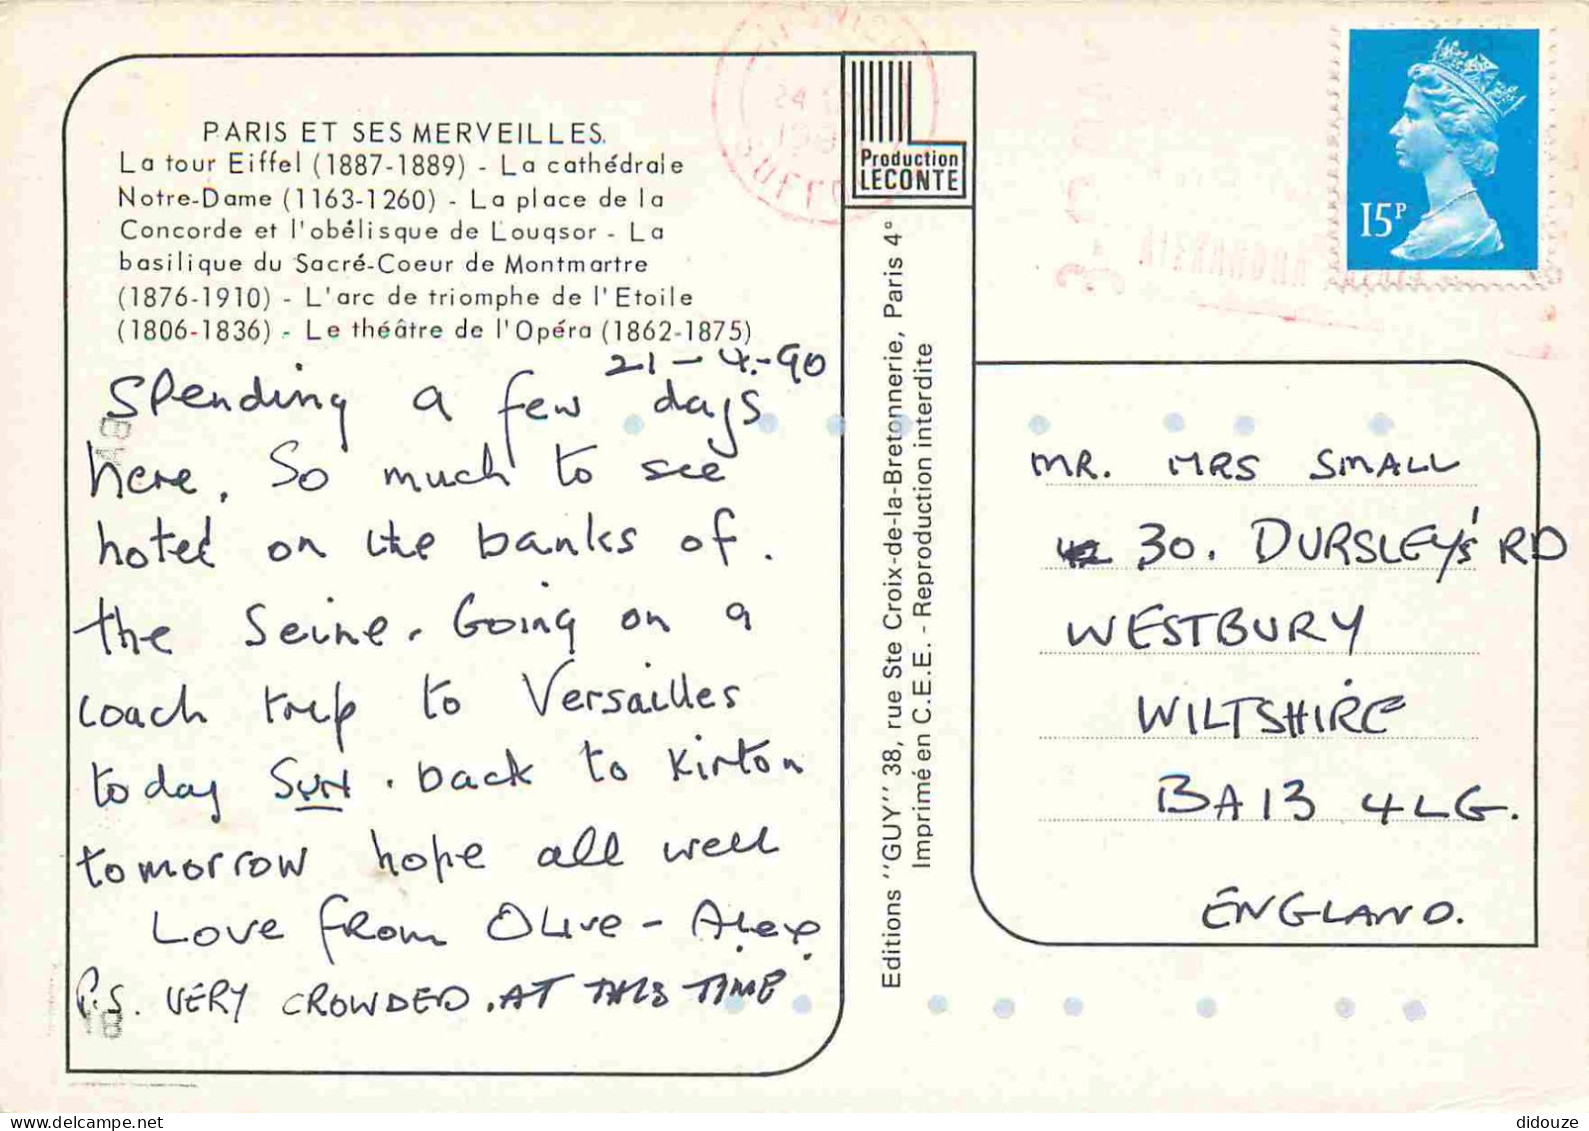 PARIS ET SES MERVEILLES.
La tour Eiffel (1887-1889) - La cathédrale
Notre-Dame (1163-1260) - La place de la
Concorde et l'obélisque de Louqsor - La
basilique du Sacré-Coeur de Montmartre
(1876-1910) - L'arc de triomphe de l'Etoile
(1806-1836) - Le théâtre de l'Opéra (1862-1875)
21-4-90
Spending a few days
here. So much to see
hotel on the banks of.
the Seine. Going on a
coach trip to Versailles
today SUN. back to Kirton
tomorrow hope all well
Love from Olive - Alex.
P.S. VERY CROWDED. AT THIS TIME
Production
LECONTE
Editions "GUY" 38, rue Ste Croix-de-la-Bretonnerie, Paris 4°
Imprimé en C.E.E. - Reproduction interdite
15P
MR. MRS SMALL
30. DURSLEY'S RD
WESTBURY
WILTSHIRE
BA13 4LG.
ENGLAND.
didouze